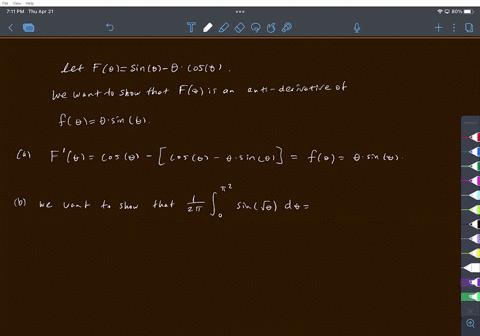 7:11 PM Thu Apr 21
80%
Let F(θ)=Sin(θ)-θ·Cos(θ).
We want to show that F(θ) is an anti-derivative of
f(θ)=θ·sin(θ).
(a) F'(θ) = cos(θ) - [cos(θ) - θ·sin(θ)] = f(θ) = θ·sin(θ).
(b) We want to show that 1/2π ∫₀^π² sin(√θ) dθ=